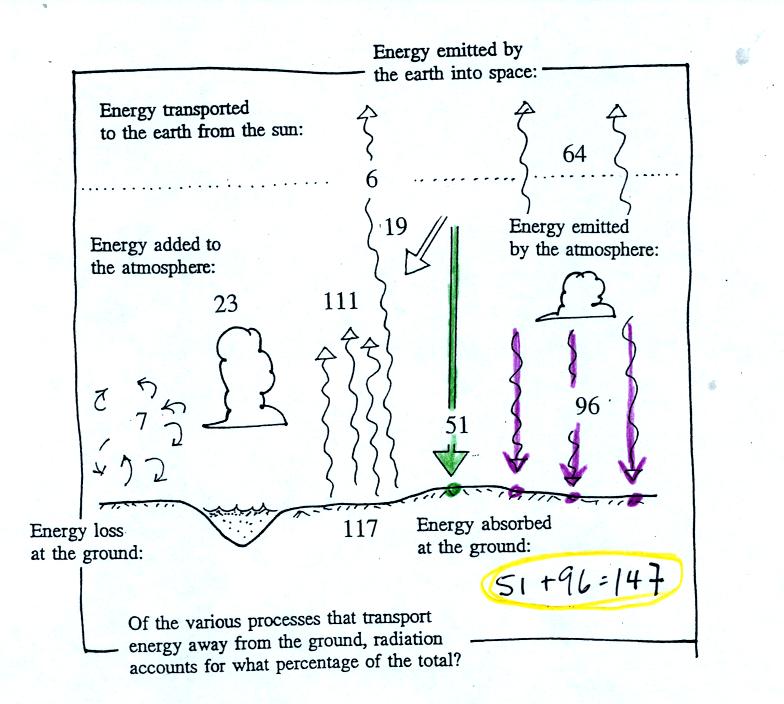 Energy emitted by
the earth into space:
Energy transported
to the earth from the sun:
64
6
19
Energy emitted
by the atmosphere:
Energy added to
the atmosphere:
23
111
7
96
51
117
Energy loss
at the ground:
Energy absorbed
at the ground:
51 + 96 = 147
Of the various processes that transport
energy away from the ground, radiation
accounts for what percentage of the total?